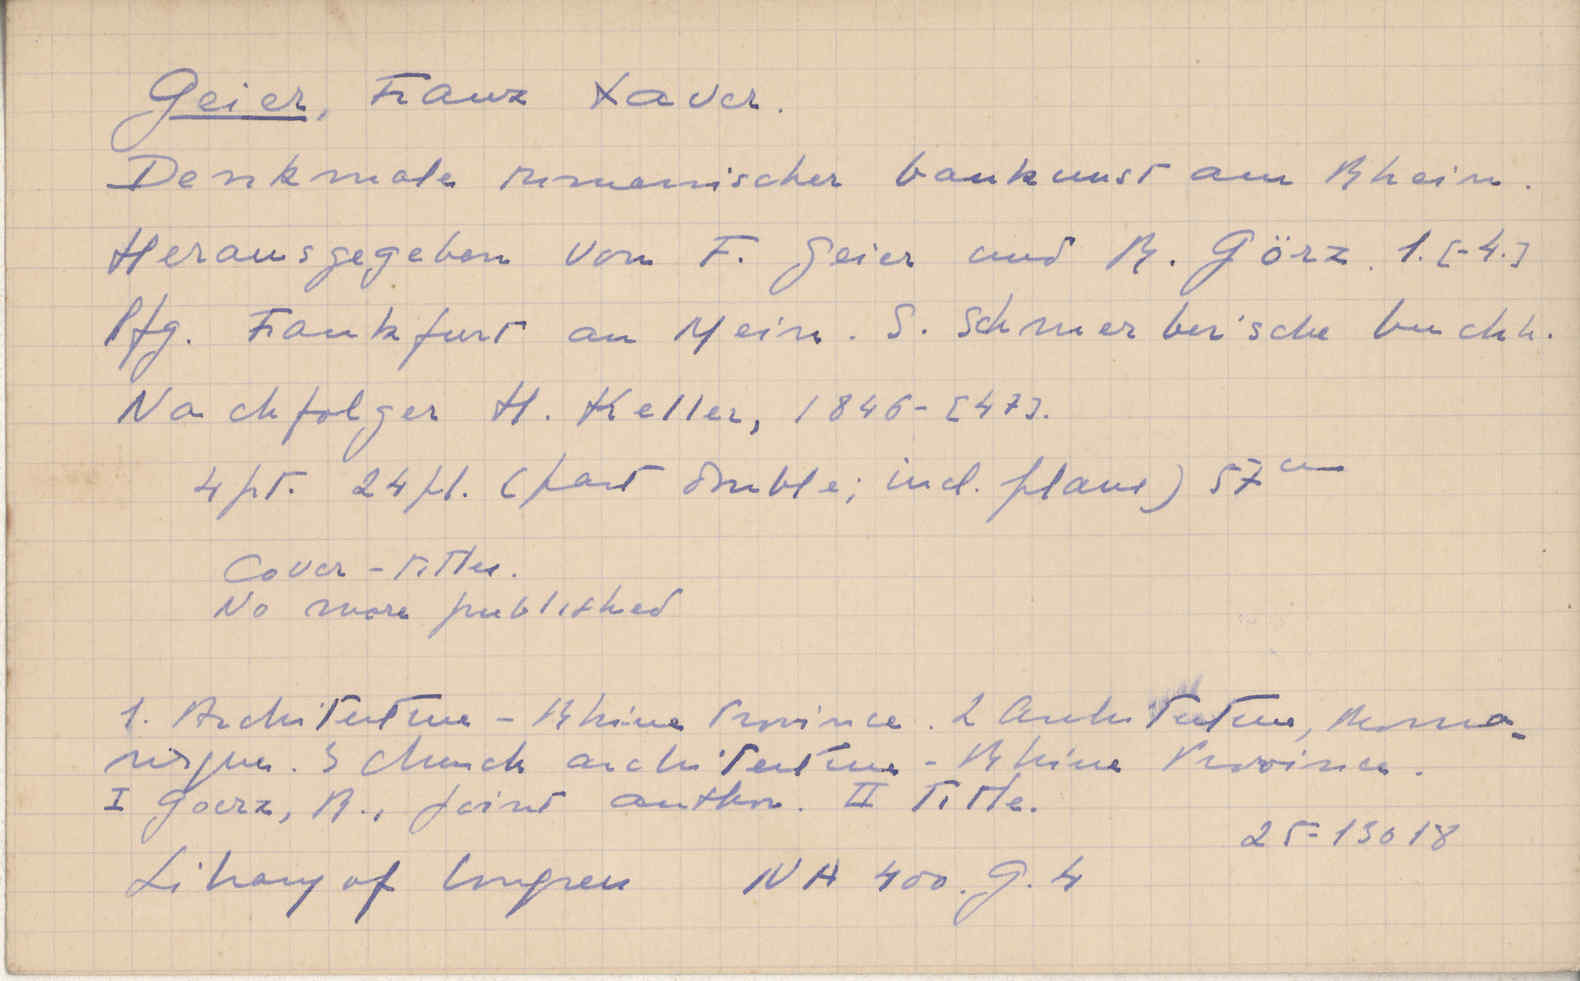 Geier, Franz Xaver.
Denkmale romanischer baukunst am Rhein.
Herausgegeben von F. Geier und R. Görz. 1.[-4.]
lfg. Frankfurt am Mein. S. Schmerber'sche buchh.
Nachfolger H. Keller, 1846-[47].
4 pt. 24 pl. (part double; incl. plans) 57 cm
Cover-title.
No more published
1. Architecture - Rhine Province. 2 Architecture, Roma-
nesque. 3 Church architecture - Rhine Province.
I Goerz, R., joint author. II Title.
25-13018
Library of Congress NA 400.G.4